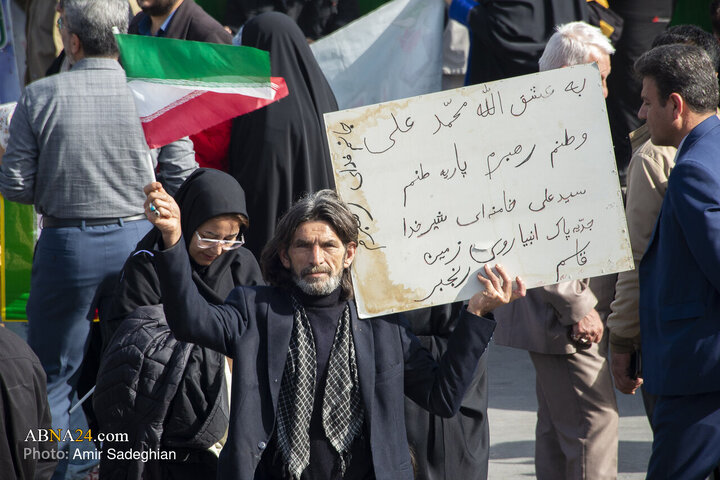 به عشق الله محمّد علی
وطنم رهبرم پاره طنم
سید علی خامنه‌ای شیر خدا
جدّته پاک انبیا روی زمین
قاسم رنجبر
جانم فدای رهبرم
ABNA24.com
Photo: Amir Sadeghian